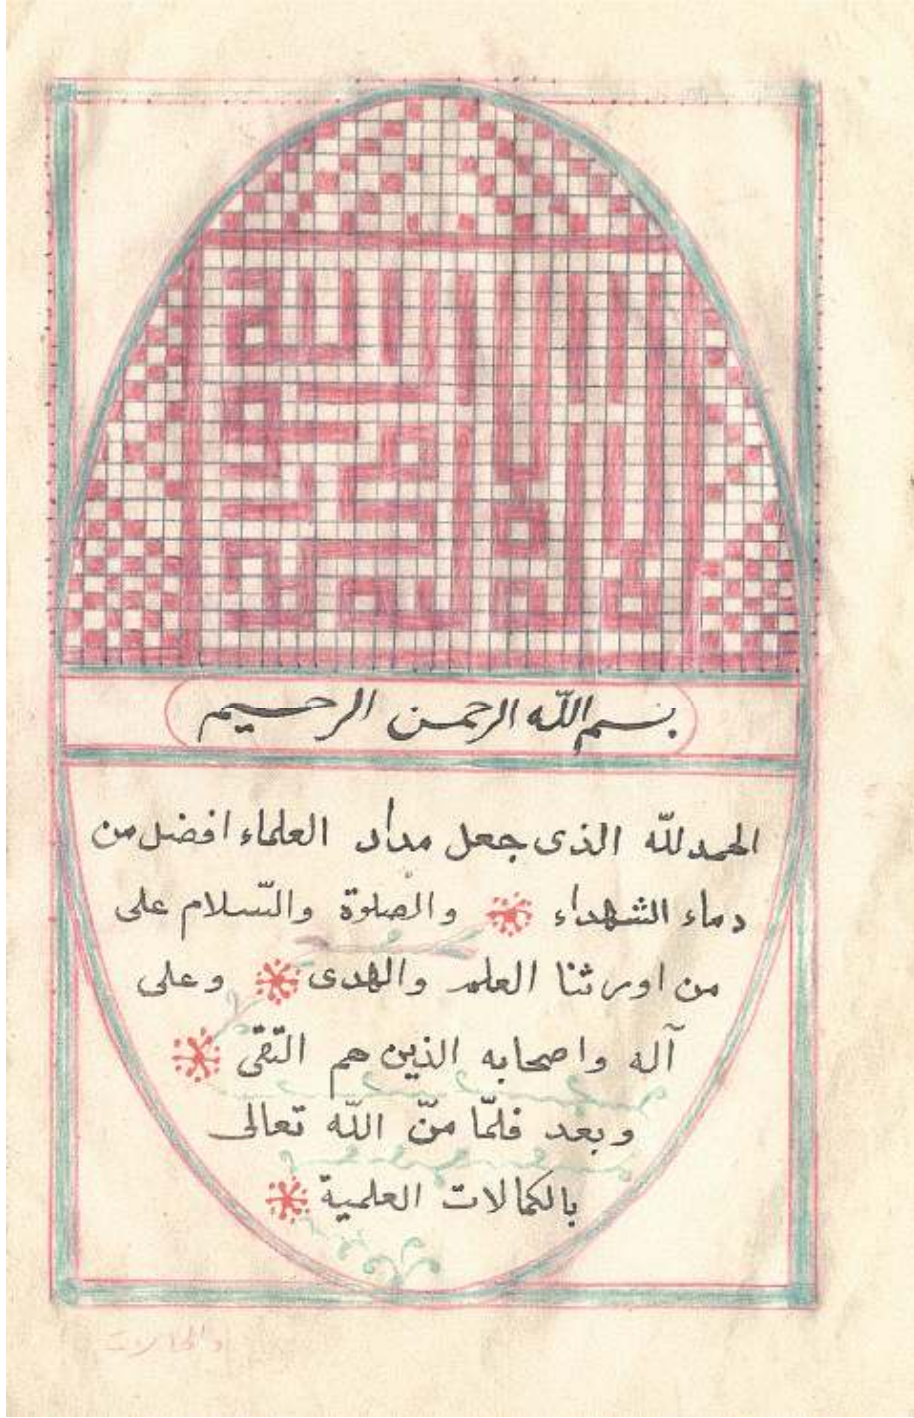 بسم الله الرحمن الرحيم
الحمد لله الذى جعل مداد العلماء افضل من
دماء الشهداء والصلوة والسّلام على
من اورثنا العلم والهدى وعلى
آله واصحابه الذين هم التقى
وبعد فلمّا منّ اللّه تعالى
بالكمالات العلمية
والحالات